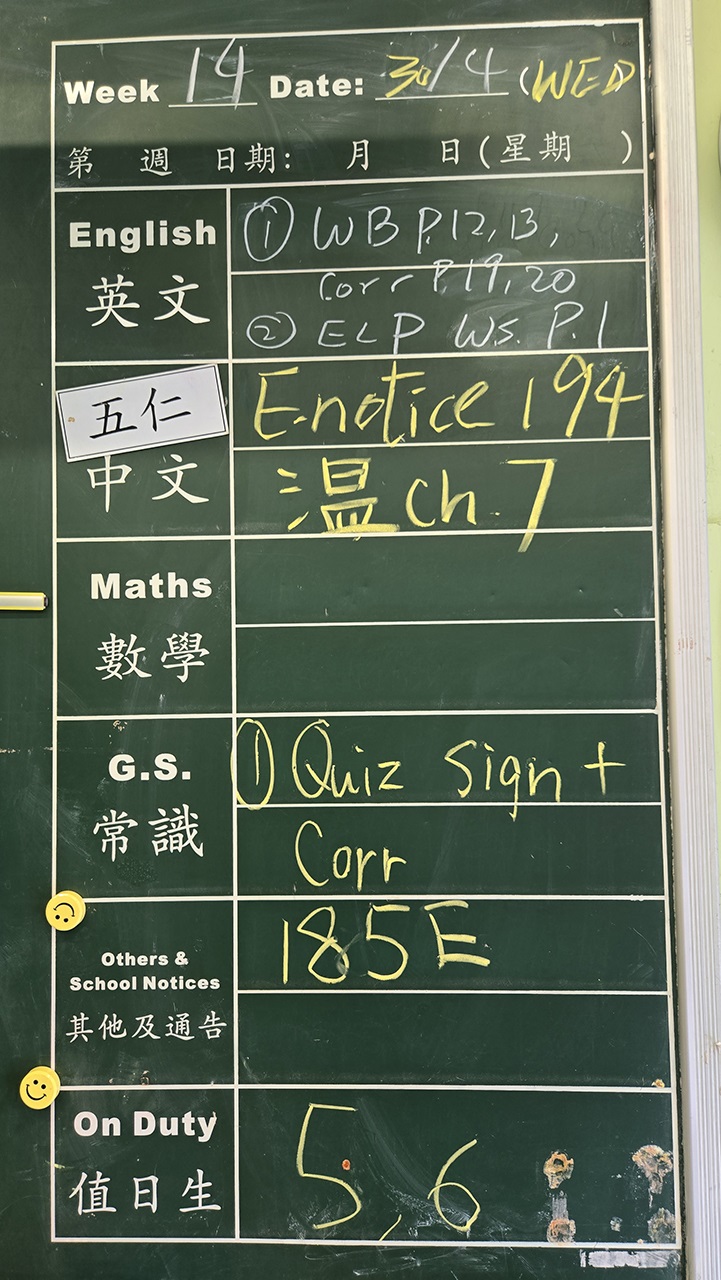 Week 14 Date: 30/4 (WED)
第 週 日期: 月 日(星期 )
English
英文
① WB P.12, 13,
Corr P.19, 20
② ELP WS. P.1
五仁
中文
E-notice 194
温 Ch.7
Maths
數學
G.S.
常識
① Quiz sign +
Corr
Others &
School Notices
其他及通告
185E
On Duty
值日生
5, 6